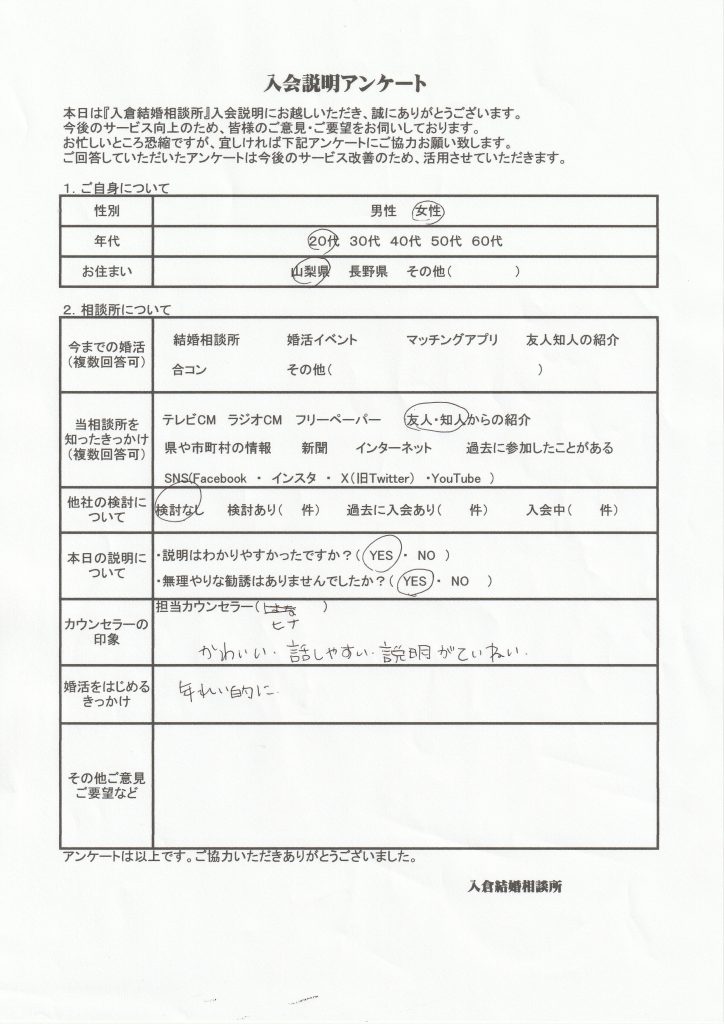 入会説明アンケート
本日は『入倉結婚相談所』入会説明にお越しいただき、誠にありがとうございます。
今後のサービス向上のため、皆様のご意見・ご要望をお伺いしております。
お忙しいところ恐縮ですが、宜しければ下記アンケートにご協力お願い致します。
ご回答していただいたアンケートは今後のサービス改善のため、活用させていただきます。
1. ご自身について
性別 男性 女性
年代 20代 30代 40代 50代 60代
お住まい 山梨県 長野県 その他( )
2. 相談所について
今までの婚活
(複数回答可)
結婚相談所 婚活イベント マッチングアプリ 友人知人の紹介
合コン その他( )
当相談所を
知ったきっかけ
(複数回答可)
テレビCM ラジオCM フリーペーパー 友人・知人からの紹介
県や市町村の情報 新聞 インターネット 過去に参加したことがある
SNS(Facebook ・ インスタ ・ X(旧Twitter) ・YouTube )
他社の検討に
ついて
検討なし 検討あり( 件) 過去に入会あり( 件) 入会中( 件)
本日の説明に
ついて
・説明はわかりやすかったですか?( YES ・ NO )
・無理やりな勧誘はありませんでしたか?( YES ・ NO )
カウンセラーの
印象
担当カウンセラー( )
ヒナ
かわいい・話しやすい・説明がていねい.
婚活をはじめる
きっかけ
年れい的に
その他ご意見
ご要望など
アンケートは以上です。ご協力いただきありがとうございました。
入倉結婚相談所